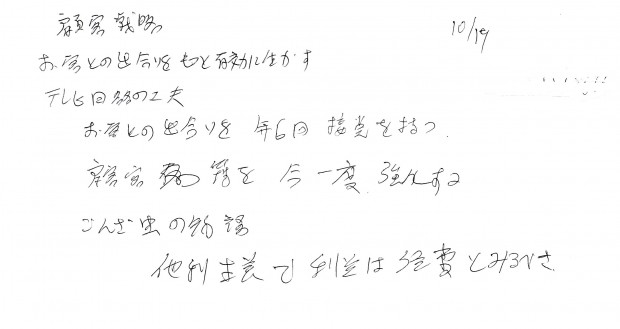 顧客戦略
10/19
お客との出合いをもと有効に生かす
テレビ回路の工夫
お客との出合いを年6回接点を持つ.
顧客 を今一度、強化する
ごんざ虫の物語
他利主義で利益は経費とみるべき